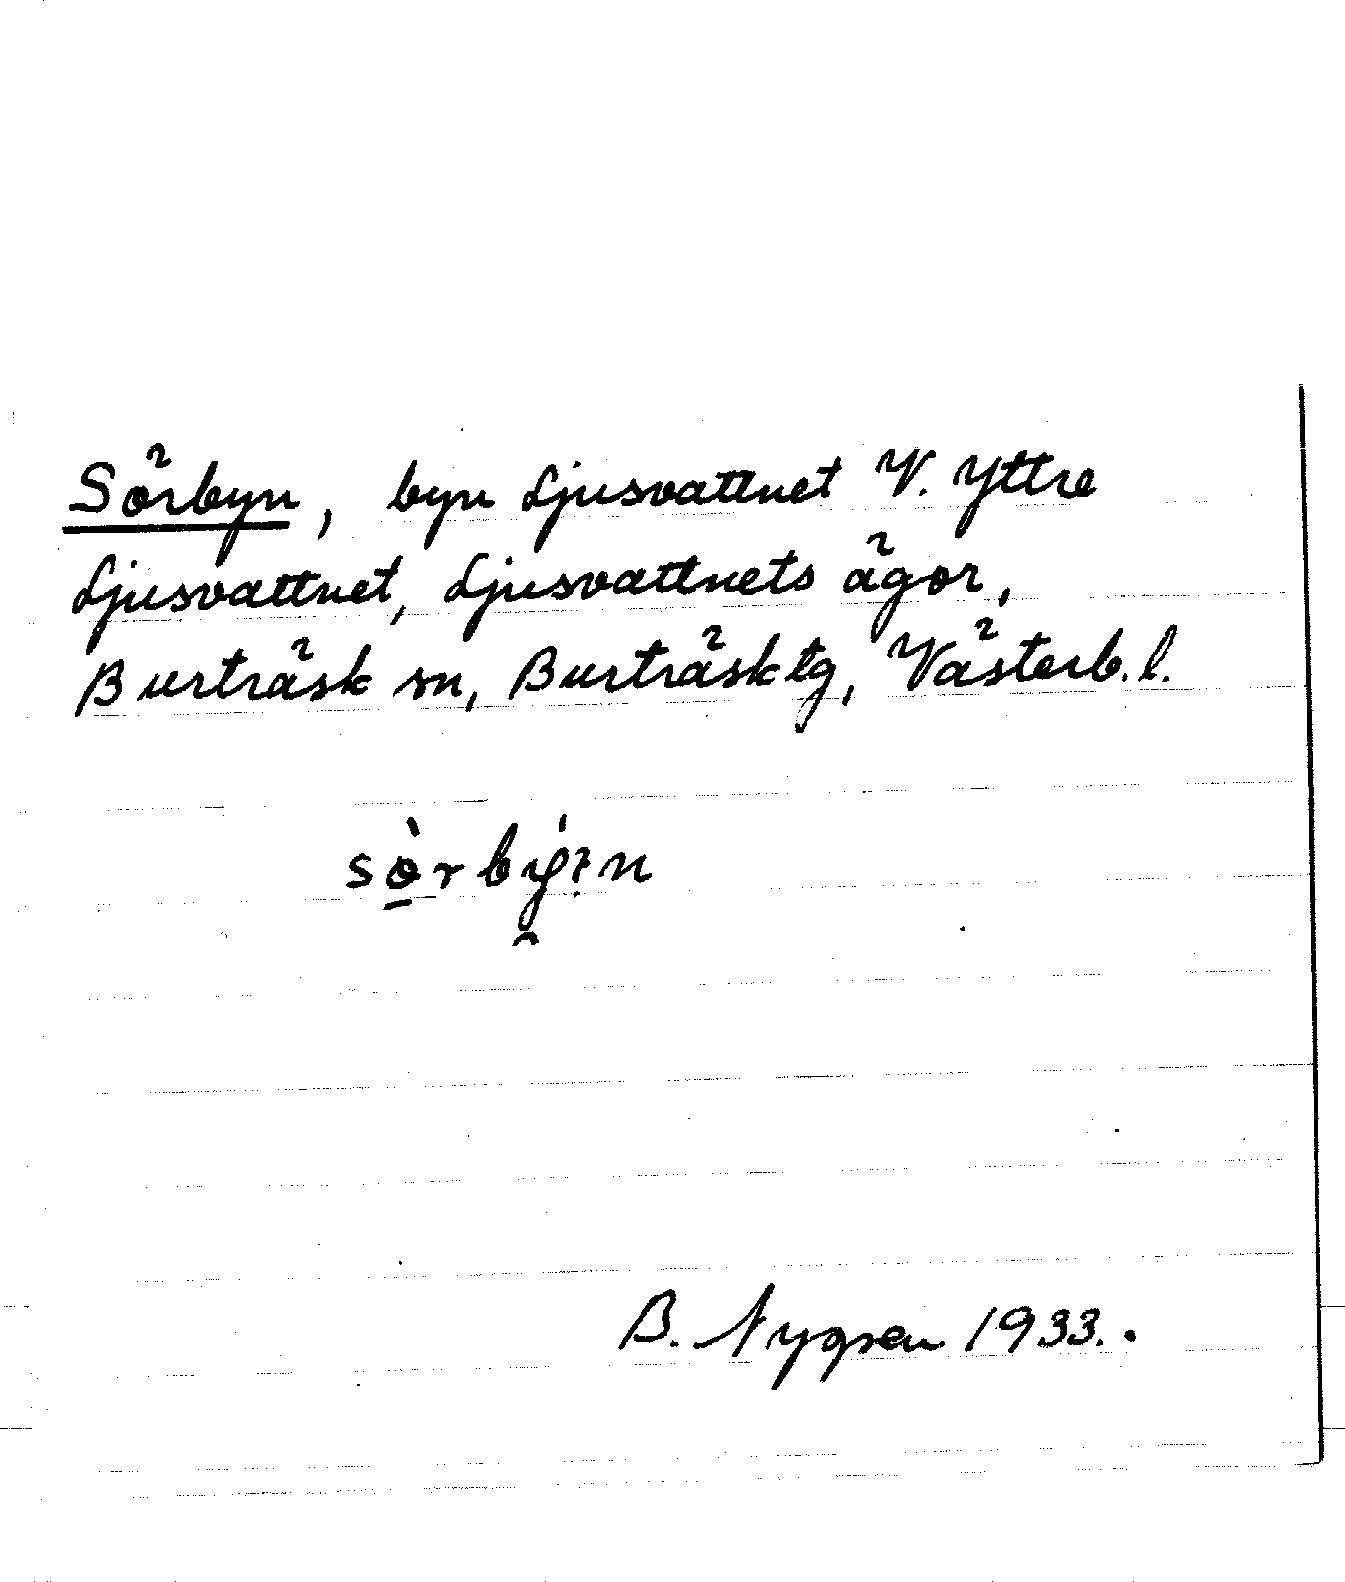 Sörbyn, byn Ljusvattnet V. Yttre
Ljusvattnet, Ljusvattnets ägor,
Burträsk sn, Burträsk tg, Västerb. l.
B. Nygren 1933.